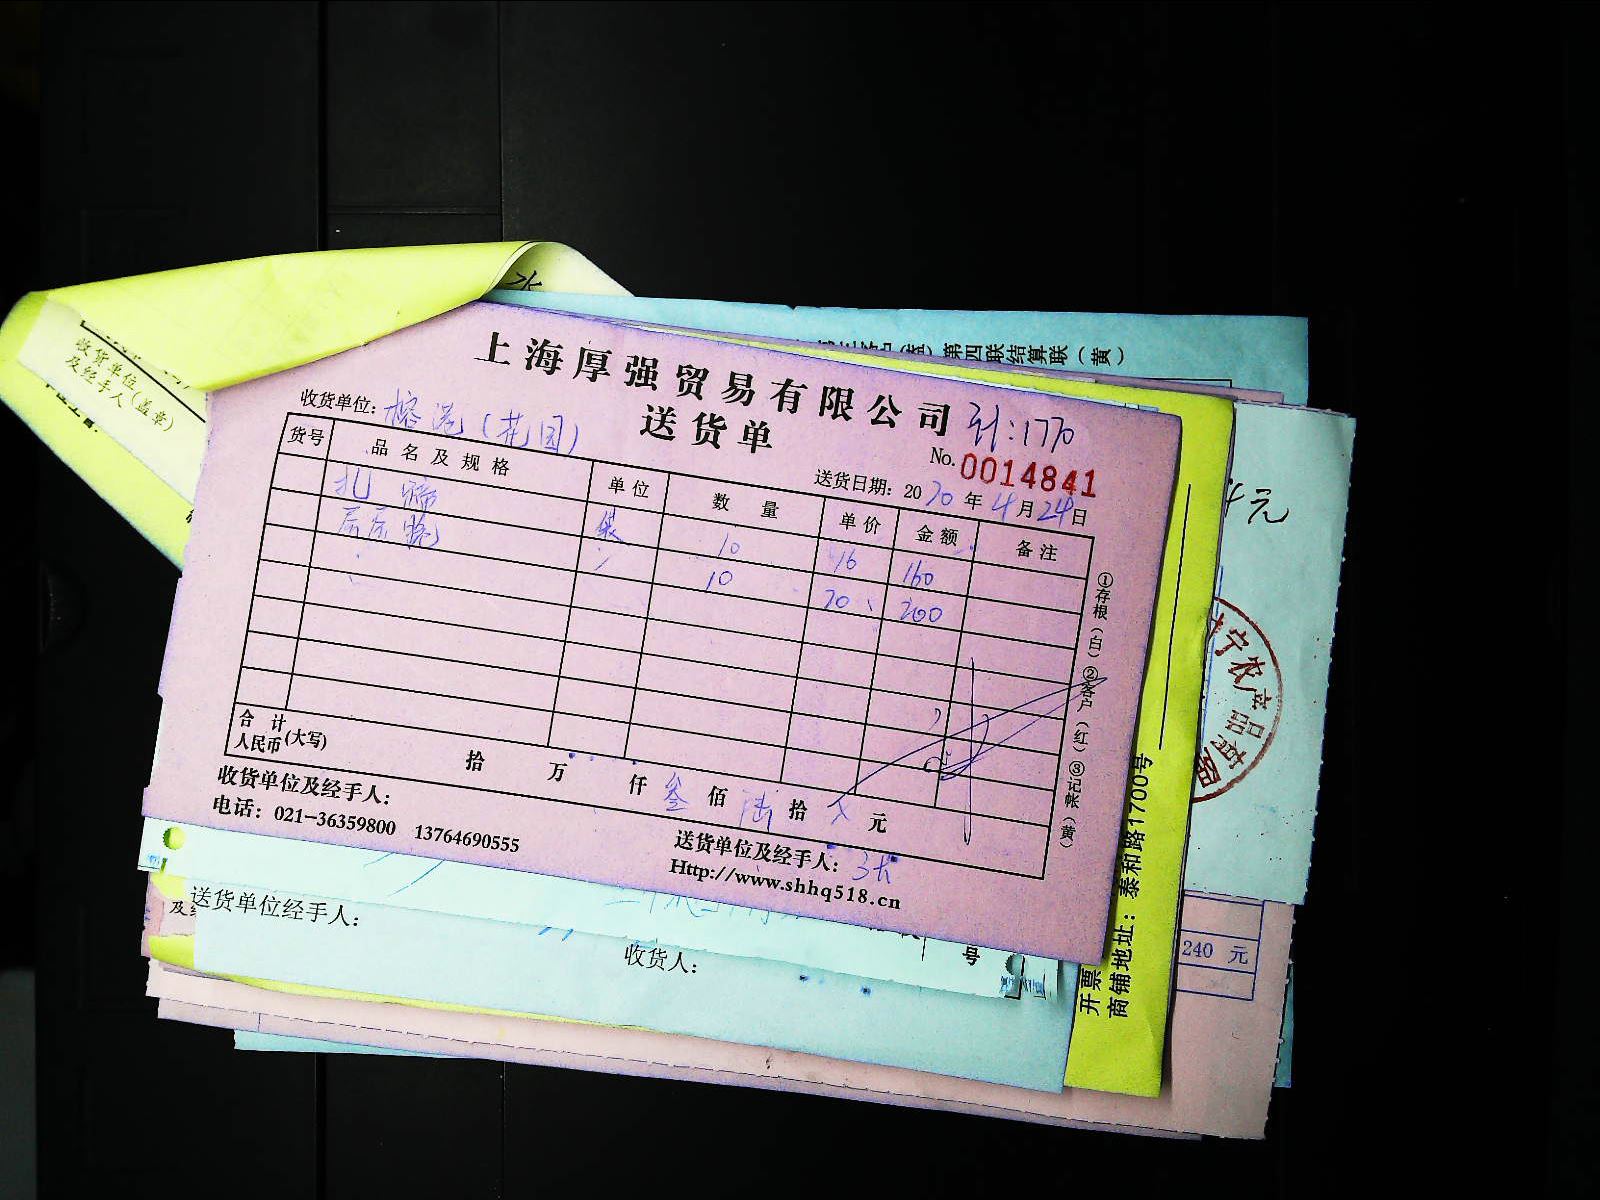 水
收货单位
及经手人(盖章)
第四联结算联(黄)
上海厚强贸易有限公司
计:1770
送货单
No. 0014841
收货单位: 榕港(花园)
送货日期: 2020年4月24日
货号 品名及规格 单位 数量 单价 金额 备注
袋 10 16 160
10 20 200
合计
人民币(大写) 拾 万 仟 叁佰 陆拾 元
收货单位及经手人:
电话: 021-36359800 13764690555
送货单位及经手人:
Http://www.shhq518.cn
①存根(白)②客户(红)③记帐(黄)
元
宁农产品
240 元
开票
商铺地址:泰和路1700号
送货单位经手人:
收货人:
号